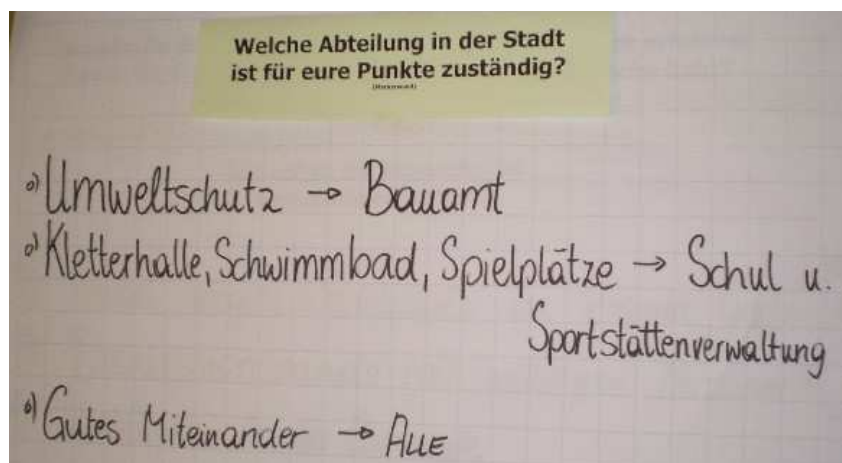 Welche Abteilung in der Stadt
ist für eure Punkte zuständig?
Umweltschutz → Bauamt
Kletterhalle, Schwimmbad, Spielplätze → Schul u.
Sportstättenverwaltung
Gutes Miteinander → ALLE